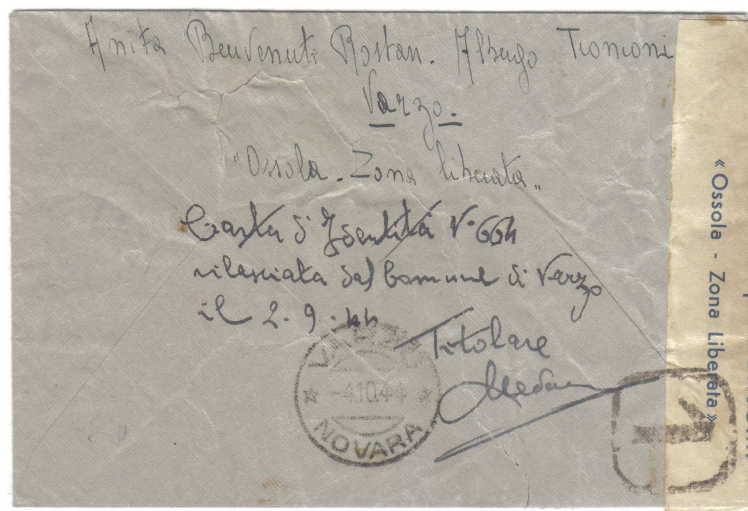 Anita Benvenuti Rostan. Albergo Tronconi
Varzo.
"Ossola - Zona liberata"
Carta d'Identità N° 664
rilasciata dal Comune di Varzo
il 2.9.44
Titolare
VARZO
-4.10.44
NOVARA
«Ossola - Zona Liberata»